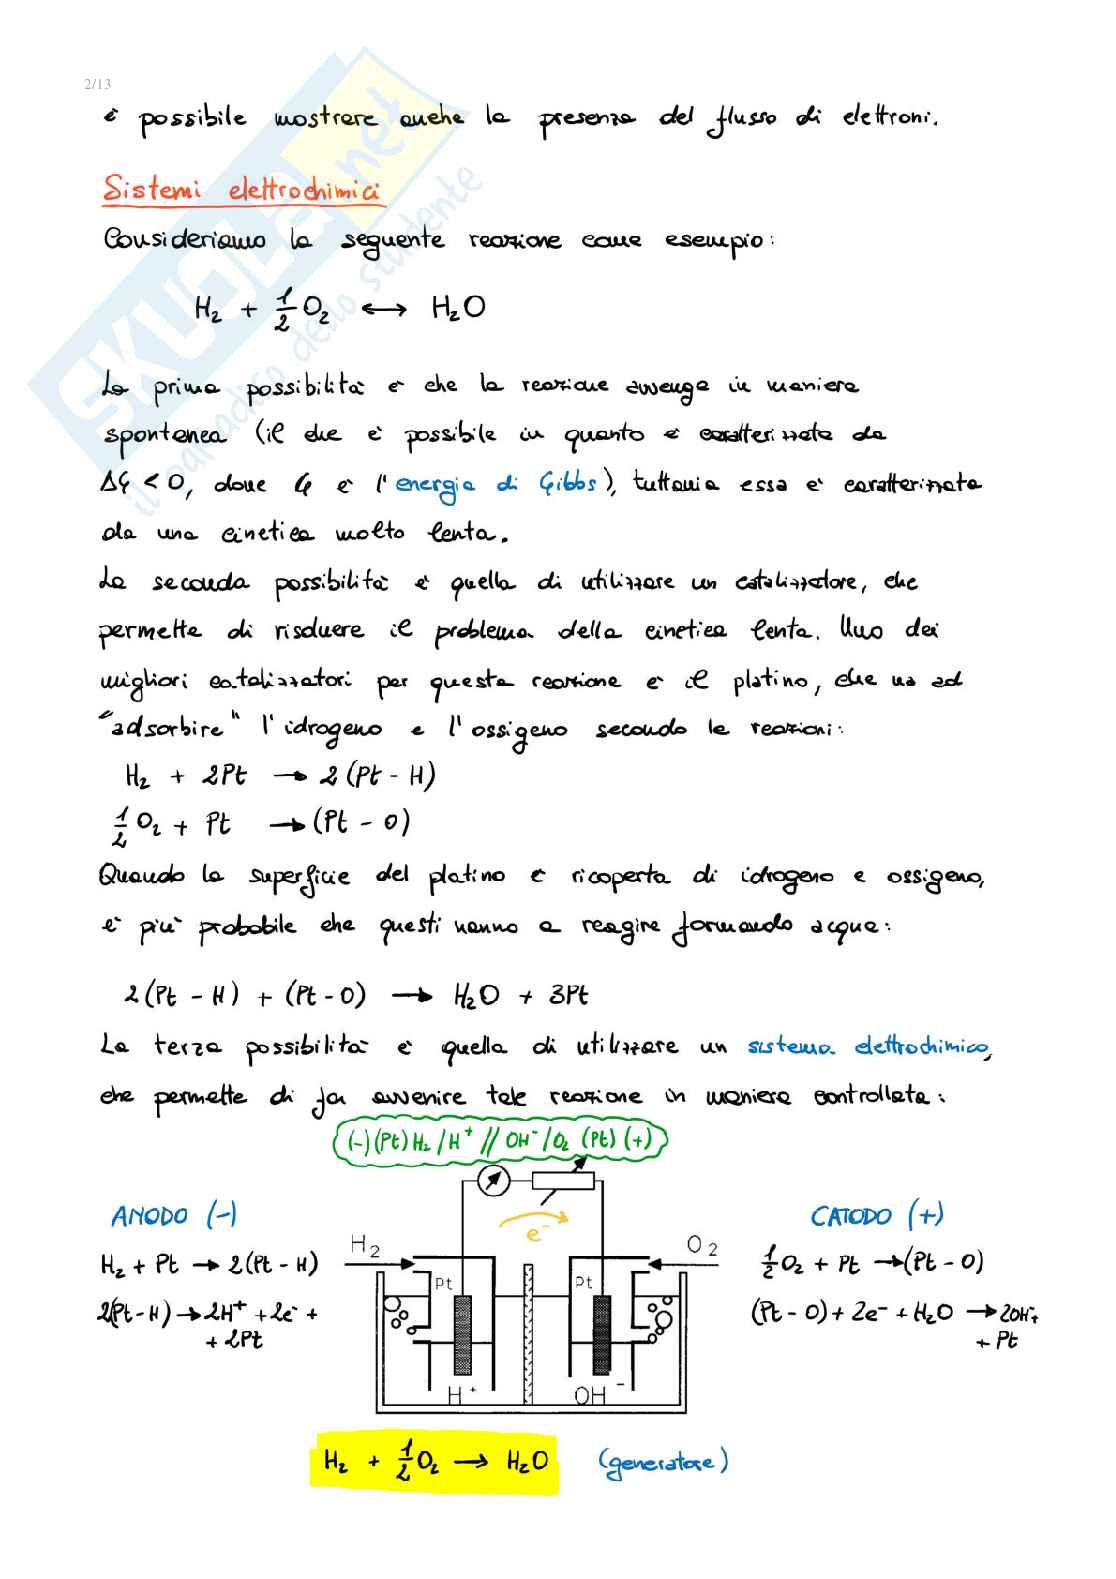 2/13
è possibile mostrare anche la presenza del flusso di elettroni.
Sistemi elettrochimici
Consideriamo la seguente reazione come esempio:
H₂ + 1/2 O₂ ⟷ H₂O
La prima possibilità è che la reazione avvenga in maniera
spontanea (il che è possibile in quanto è caratterizzata da
ΔG < 0, dove G è l'energia di Gibbs), tuttavia essa è caratterizzata
da una cinetica molto lenta.
La seconda possibilità è quella di utilizzare un catalizzatore, che
permette di risolvere il problema della cinetica lenta. Uno dei
migliori catalizzatori per questa reazione è il platino, che va ad
"adsorbire" l'idrogeno e l'ossigeno secondo le reazioni:
H₂ + 2Pt → 2(Pt - H)
1/2 O₂ + Pt → (Pt - O)
Quando la superficie del platino è ricoperta di idrogeno e ossigeno,
è più probabile che questi vanno a reagire formando acqua:
2(Pt - H) + (Pt - O) → H₂O + 3Pt
La terza possibilità è quella di utilizzare un sistema elettrochimico,
che permette di far avvenire tale reazione in maniera controllata:
(-)(Pt) H₂ / H⁺ // OH⁻ / O₂ (Pt) (+)
ANODO (-)
H₂ + Pt → 2(Pt - H)
2(Pt - H) → 2H⁺ + 2e⁻ +
+ 2Pt
e⁻
H₂
O₂
Pt
Pt
H⁺
OH⁻
CATODO (+)
1/2 O₂ + Pt → (Pt - O)
(Pt - O) + 2e⁻ + H₂O → 2OH⁻ +
+ Pt
H₂ + 1/2 O₂ → H₂O (generatore)
SKUOLA.net
il paradiso dello studente